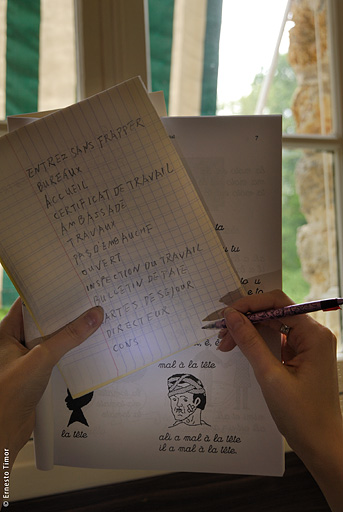 ENTREZ SANS FRAPPER
BUREAUX
ACCUEIL
CERTIFICAT DE TRAVAIL
AMBASSADE
TRAVAUX
PAS D'EMBAUCHE
OUVERT
INSPECTION DU TRAVAIL
BULLETIN DE PAIE
CARTES DE SEJOUR
DIRECTEUR
CONS
7
tu
mal à la tête
la tête
ali a mal à la tête
il a mal à la tête.
© Ernesto Timor